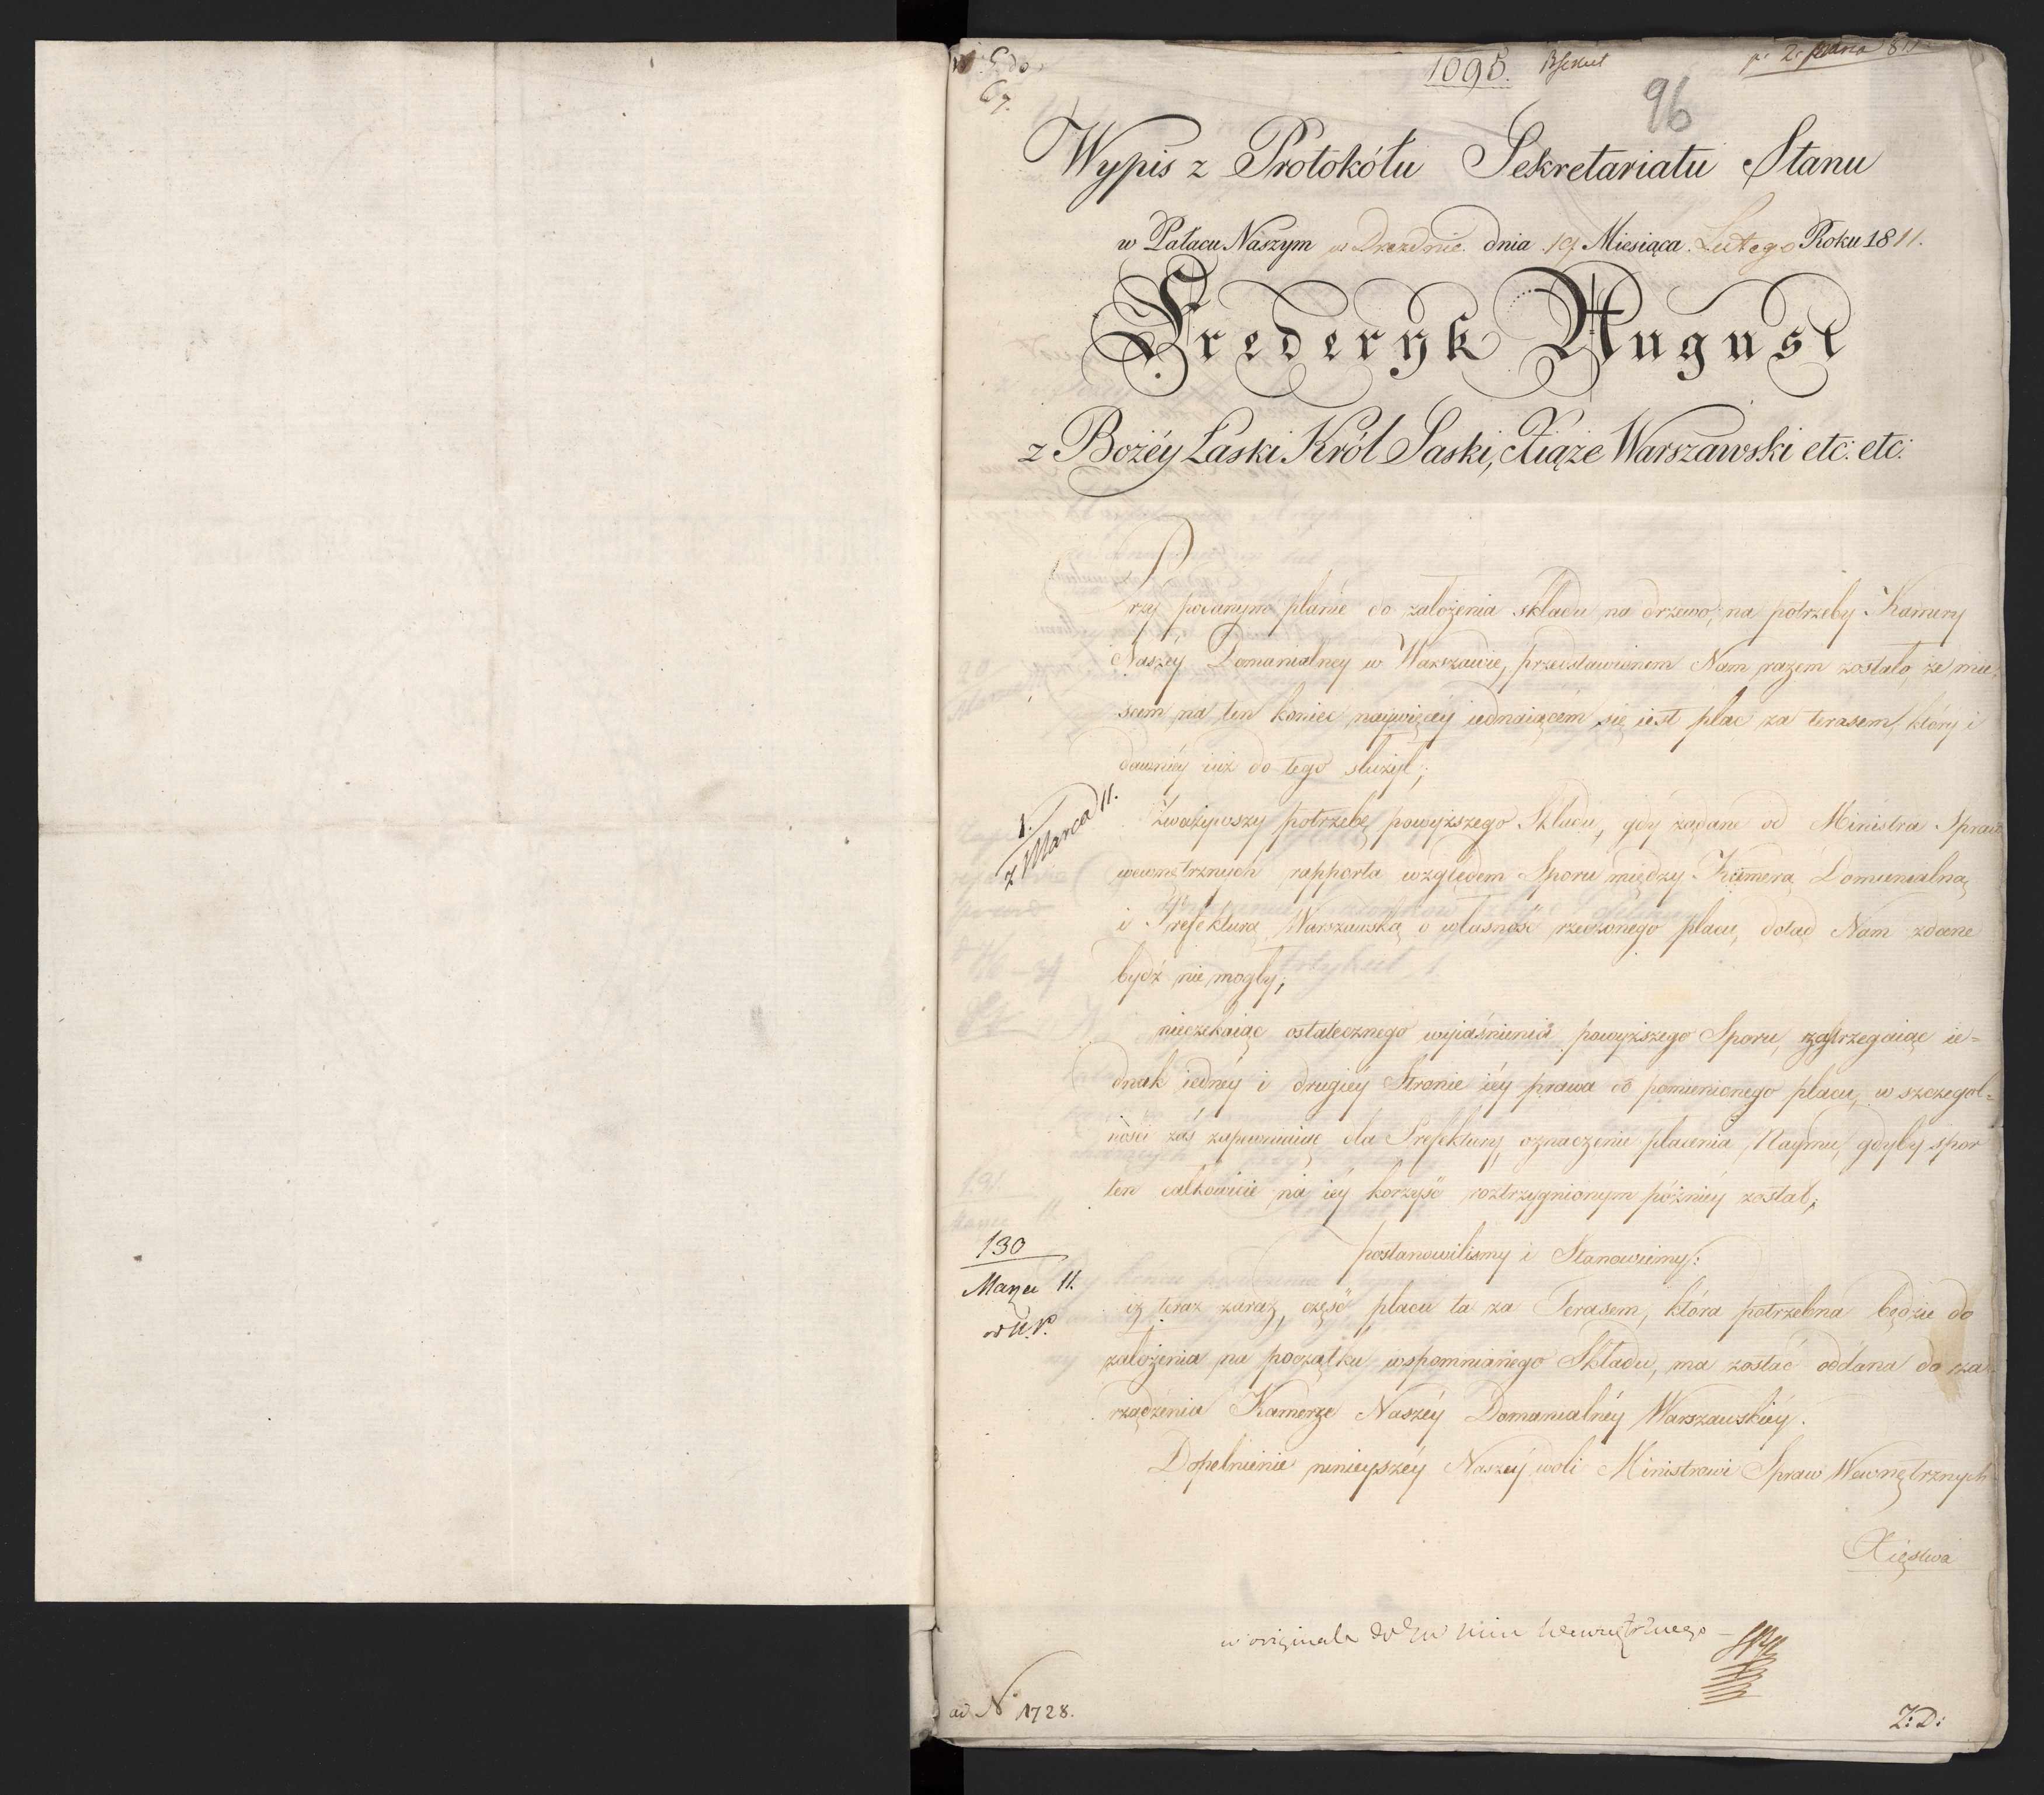 1095.
96
67.
Wypis z Protokółu Sekretariatu Stanu
w Pałacu Naszym w Dreznie dnia 19 Miesiąca Lutego Roku 1811.
Frederyk August
z Bożéy Łaski Król Saski, Xiąże Warszawski etc: etc:
Przy podanym planie do założenia składu na drzewo, na potrzeby Kamery
Naszéy Domanialney w Warszawie, przedstawionem Nam razem zostało, że miey-
scem na ten koniec naywięcéy iednaiącem się iest plac za terasem, który i
dawniéy iuż do tego służył;
1.
z Marca 11.
Zważywszy potrzebę powyższego Składu, gdy żądane od Ministra Spraw
wewnętrznych rapporta względem Sporu między Kamerą Domanialną
i Prefekturą Warszawską o własność rzeczonego placu, dotąd Nam zdane
bydź nie mogły;
nieczekaiąc ostatecznego wyiaśnienia powyższego Sporu, zastrzegaiąc ie=
dnak iednéy i drugiéy Stronie iéy prawa do pomienionego placu, w szczegól=
ności zaś zapewniaiąc dla Prefektury oznaczenie płacenia Naymu, gdyby spor
ten całkowicie na iéy korzyść roztrzygnionym późniéy został;
postanowilismy i Stanowiemy:
130
Marzec 11.
iż teraz zaraz, część placu ta za Terasem, która potrzebna będzie do
założenia na początku wspomnianego Składu, ma zostać oddana do za-
rządzenia Kamerze Naszéy Domanialnéy Warszawskiéy.
Dopełnienie ninieyszéy Naszéy woli Ministrowi Spraw Wewnętrznych
Xięstwa
w originale
ad N° 1728.
Z:D: